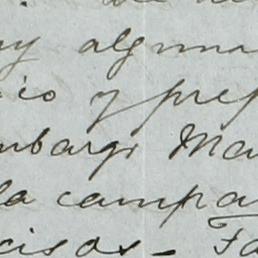 ay alguna
cio y pref
mbargo Ma
la campa
cisos - Fa